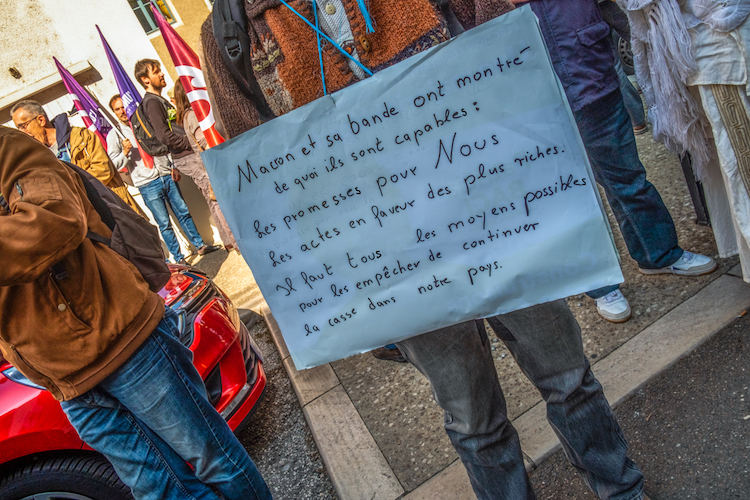 Macron et sa bande ont montré
de quoi ils sont capables :
Les promesses pour Nous
Les actes en faveur des plus riches.
Il faut tous les moyens possibles
pour les empêcher de continuer
la casse dans notre pays.